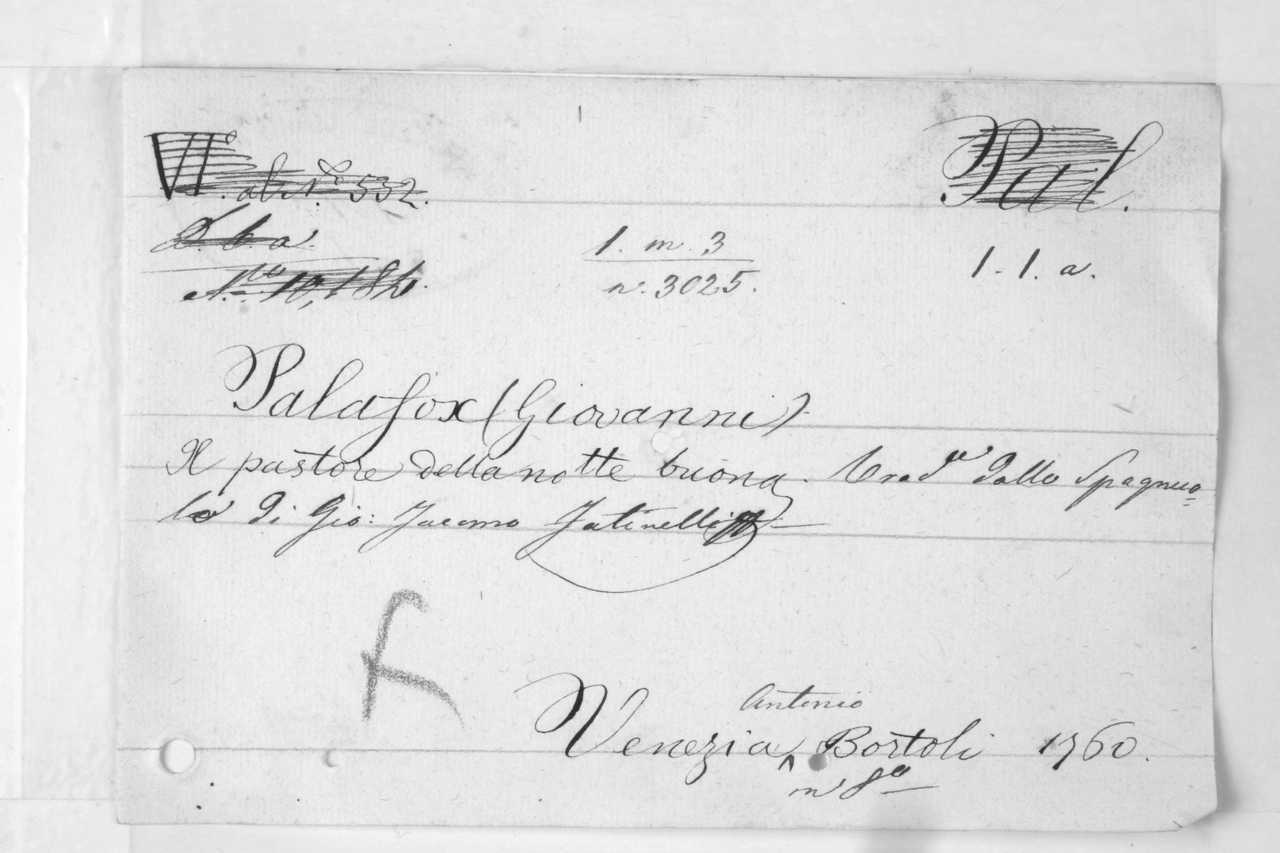 VI. ab. 1.º 532.
Pal.
1. m. 3
n. 3025.
1-1. a.
Palafox (Giovanni)
Il pastore della notte buona. Trad.º dallo Spagnuo=
lo di Gio: Jacomo Fatinelli
Antonio
Venezia, Bortoli 1760.
in 8º